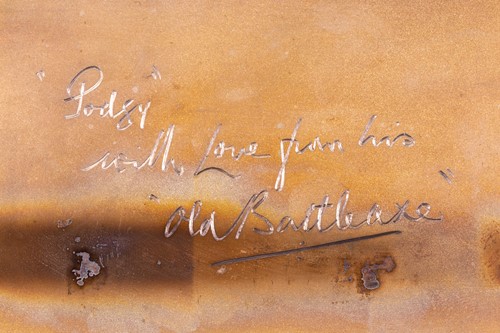 "Podgy"
with Love from his
"Old Battleaxe"